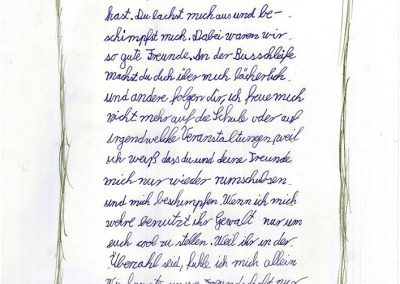 hast. Du lachst mich aus und be-
schimpfst mich. Dabei waren wir
so gute Freunde. In der Busschleife
machst du dich über mich lächerlich
und andere folgen dir, ich freue mich
nicht mehr auf die Schule oder auf
irgendwelche Veranstaltungen, weil
ich weiß dass du und deine Freunde
mich nur wieder rumschubsen
und mich beschimpfen. Wenn ich mich
wehre benutzt ihr Gewalt nur um
euch cool zu stellen. Weil ihr in der
Überzahl seid, fühle ich mich allein